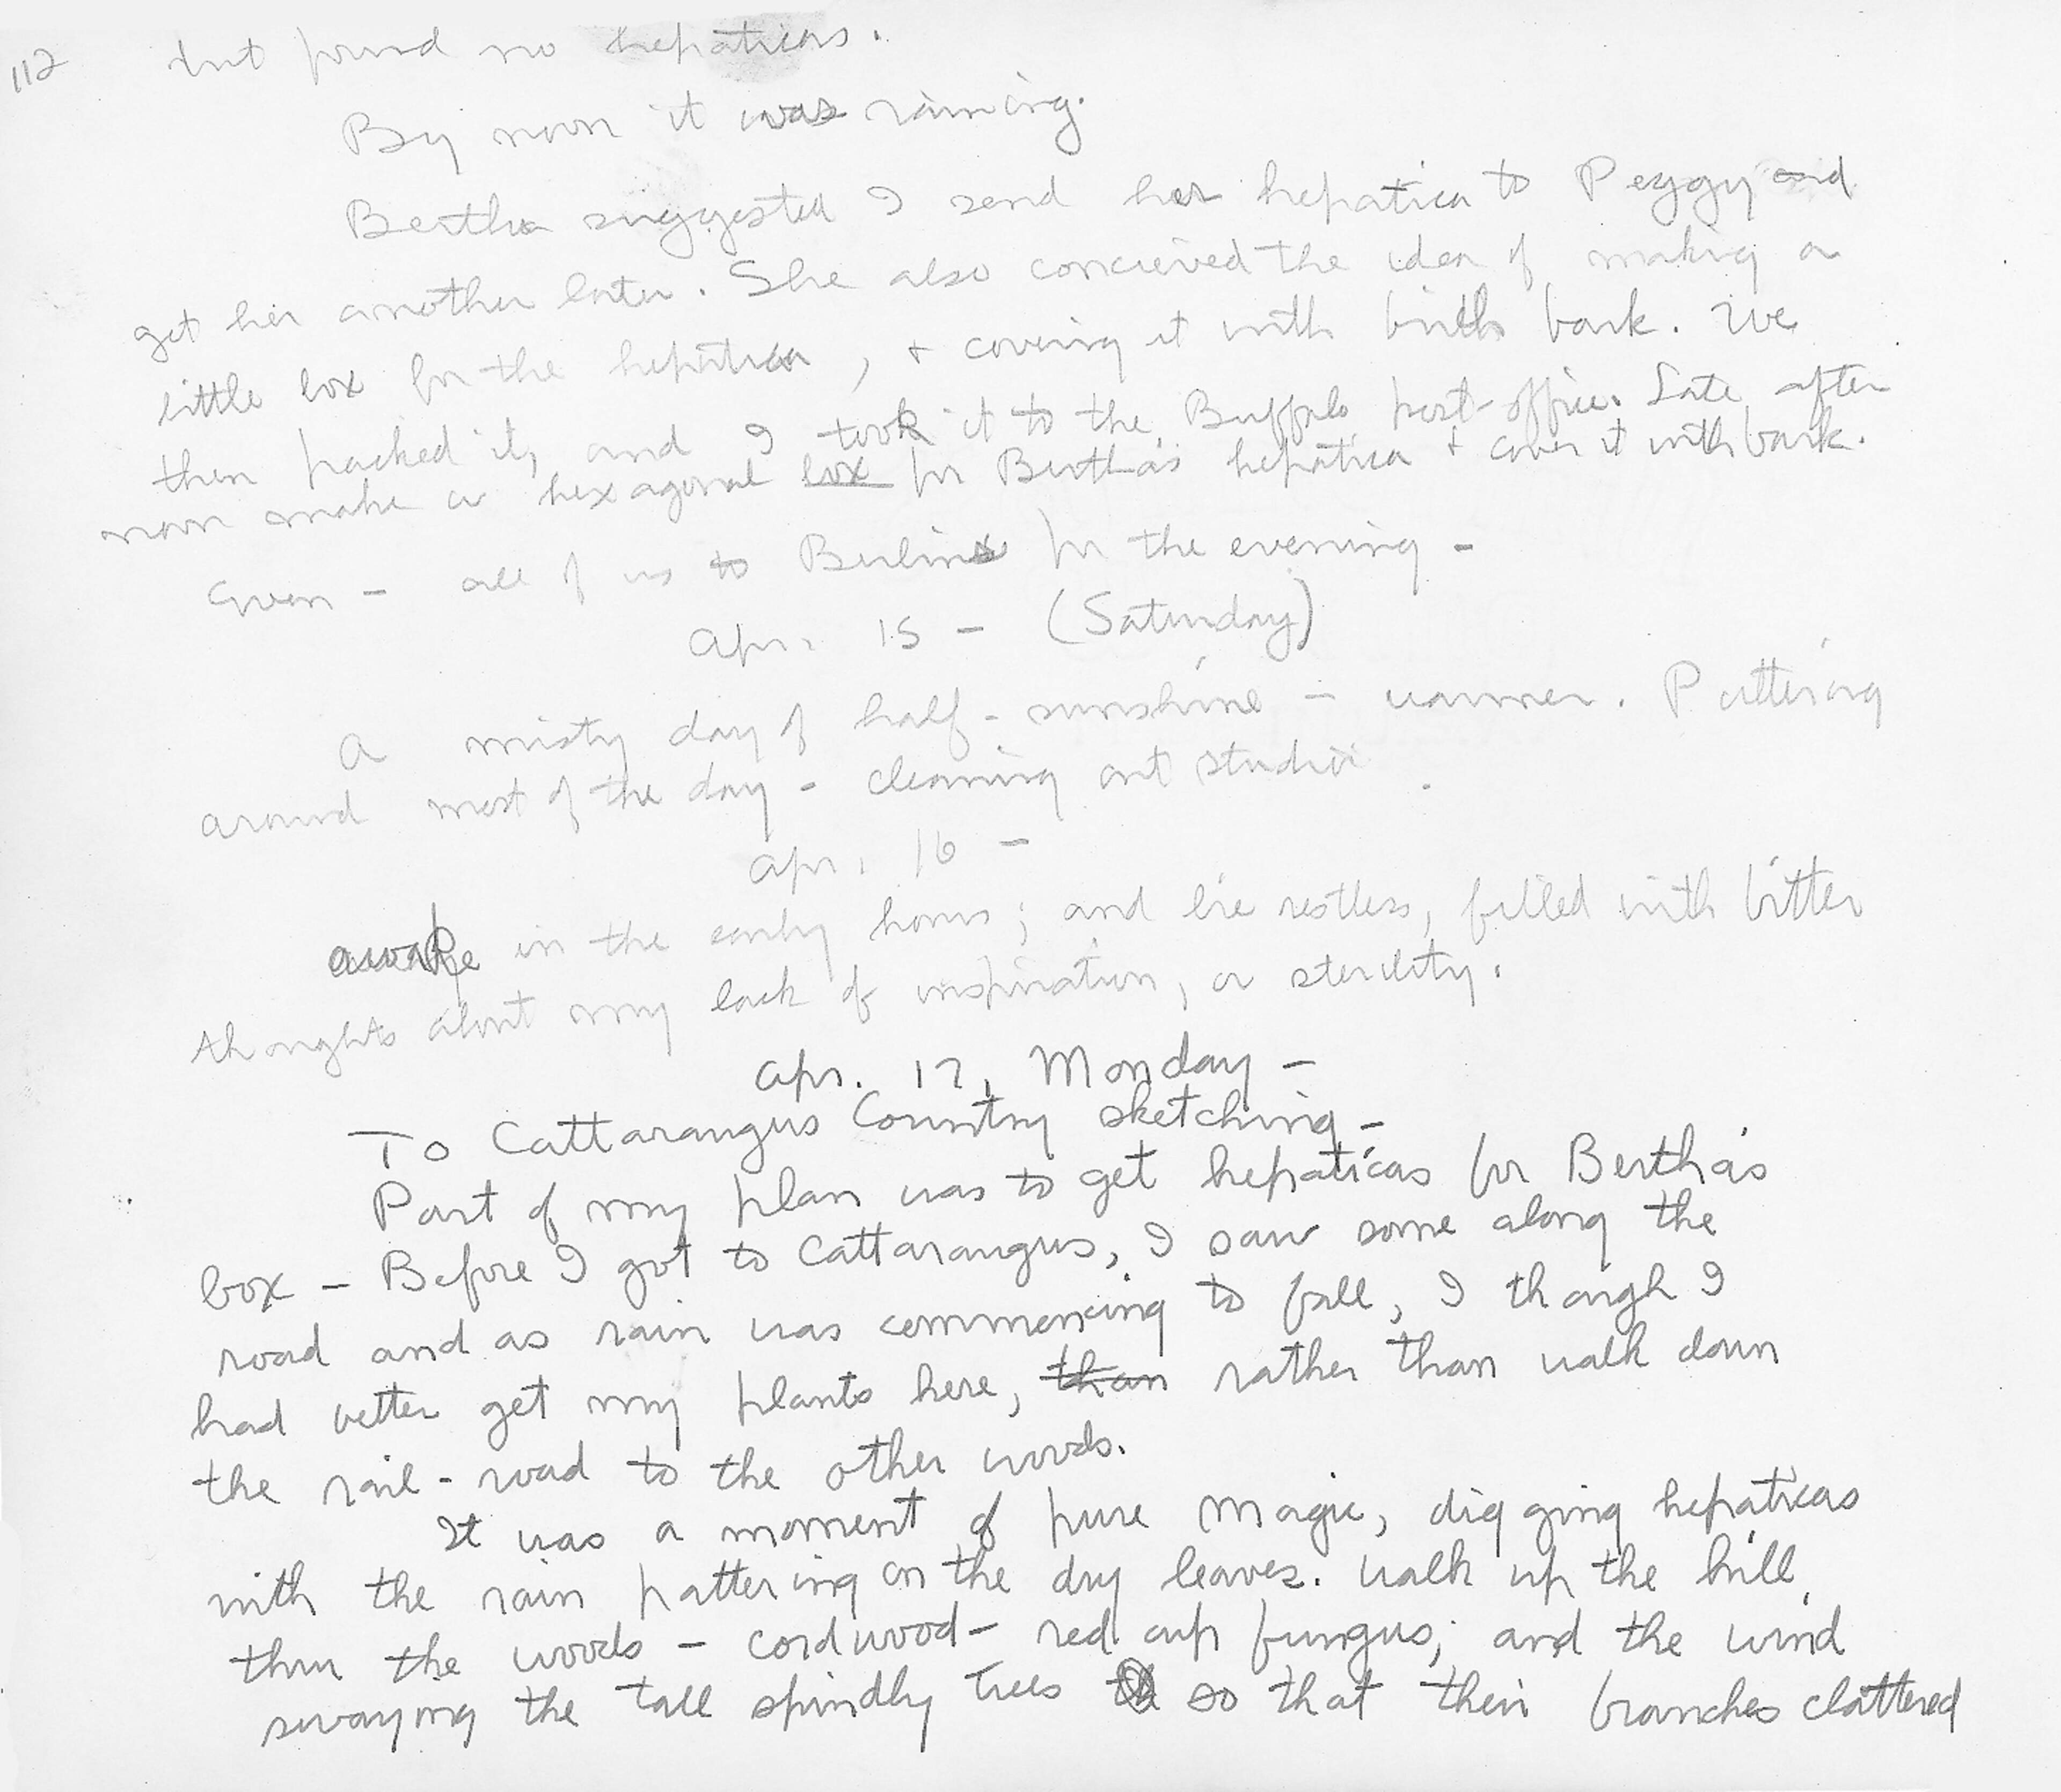 112 but found no hepaticas.
By noon it was raining.
Bertha suggested I send her hepatica to Peggy and
get her another later. She also concieved the idea of making a
little box for the hepatica, + covering it with birch bark. We
then packed it, and I took it to the Buffalo post-office. Late after
noon make a hexagonal box for Bertha's hepatica + cover it with bark.
Even - all of us to Berlins for the evening -
Apr. 15 - (Saturday)
A misty day of half-sunshine - warmer. Puttering
around most of the day - cleaning out studio
Apr. 16 -
Awake in the early hours; and lie restless, filled with bitter
thoughts about my lack of inspiration, or sterility.
Apr. 17, Monday -
To Cattaraugus Country sketching -
Part of my plan was to get hepaticas for Bertha's
box - Before I got to Cattaraugus, I saw some along the
road and as rain was commencing to fall, I though I
had better get my plants here, than rather than walk down
the rail-road to the other woods.
It was a moment of pure magic, digging hepaticas
with the rain pattering on the dry leaves. Walk up the hill,
thru the woods - cordwood - red cup fungus; and the wind
swaying the tall spindly trees so that their branches clattered